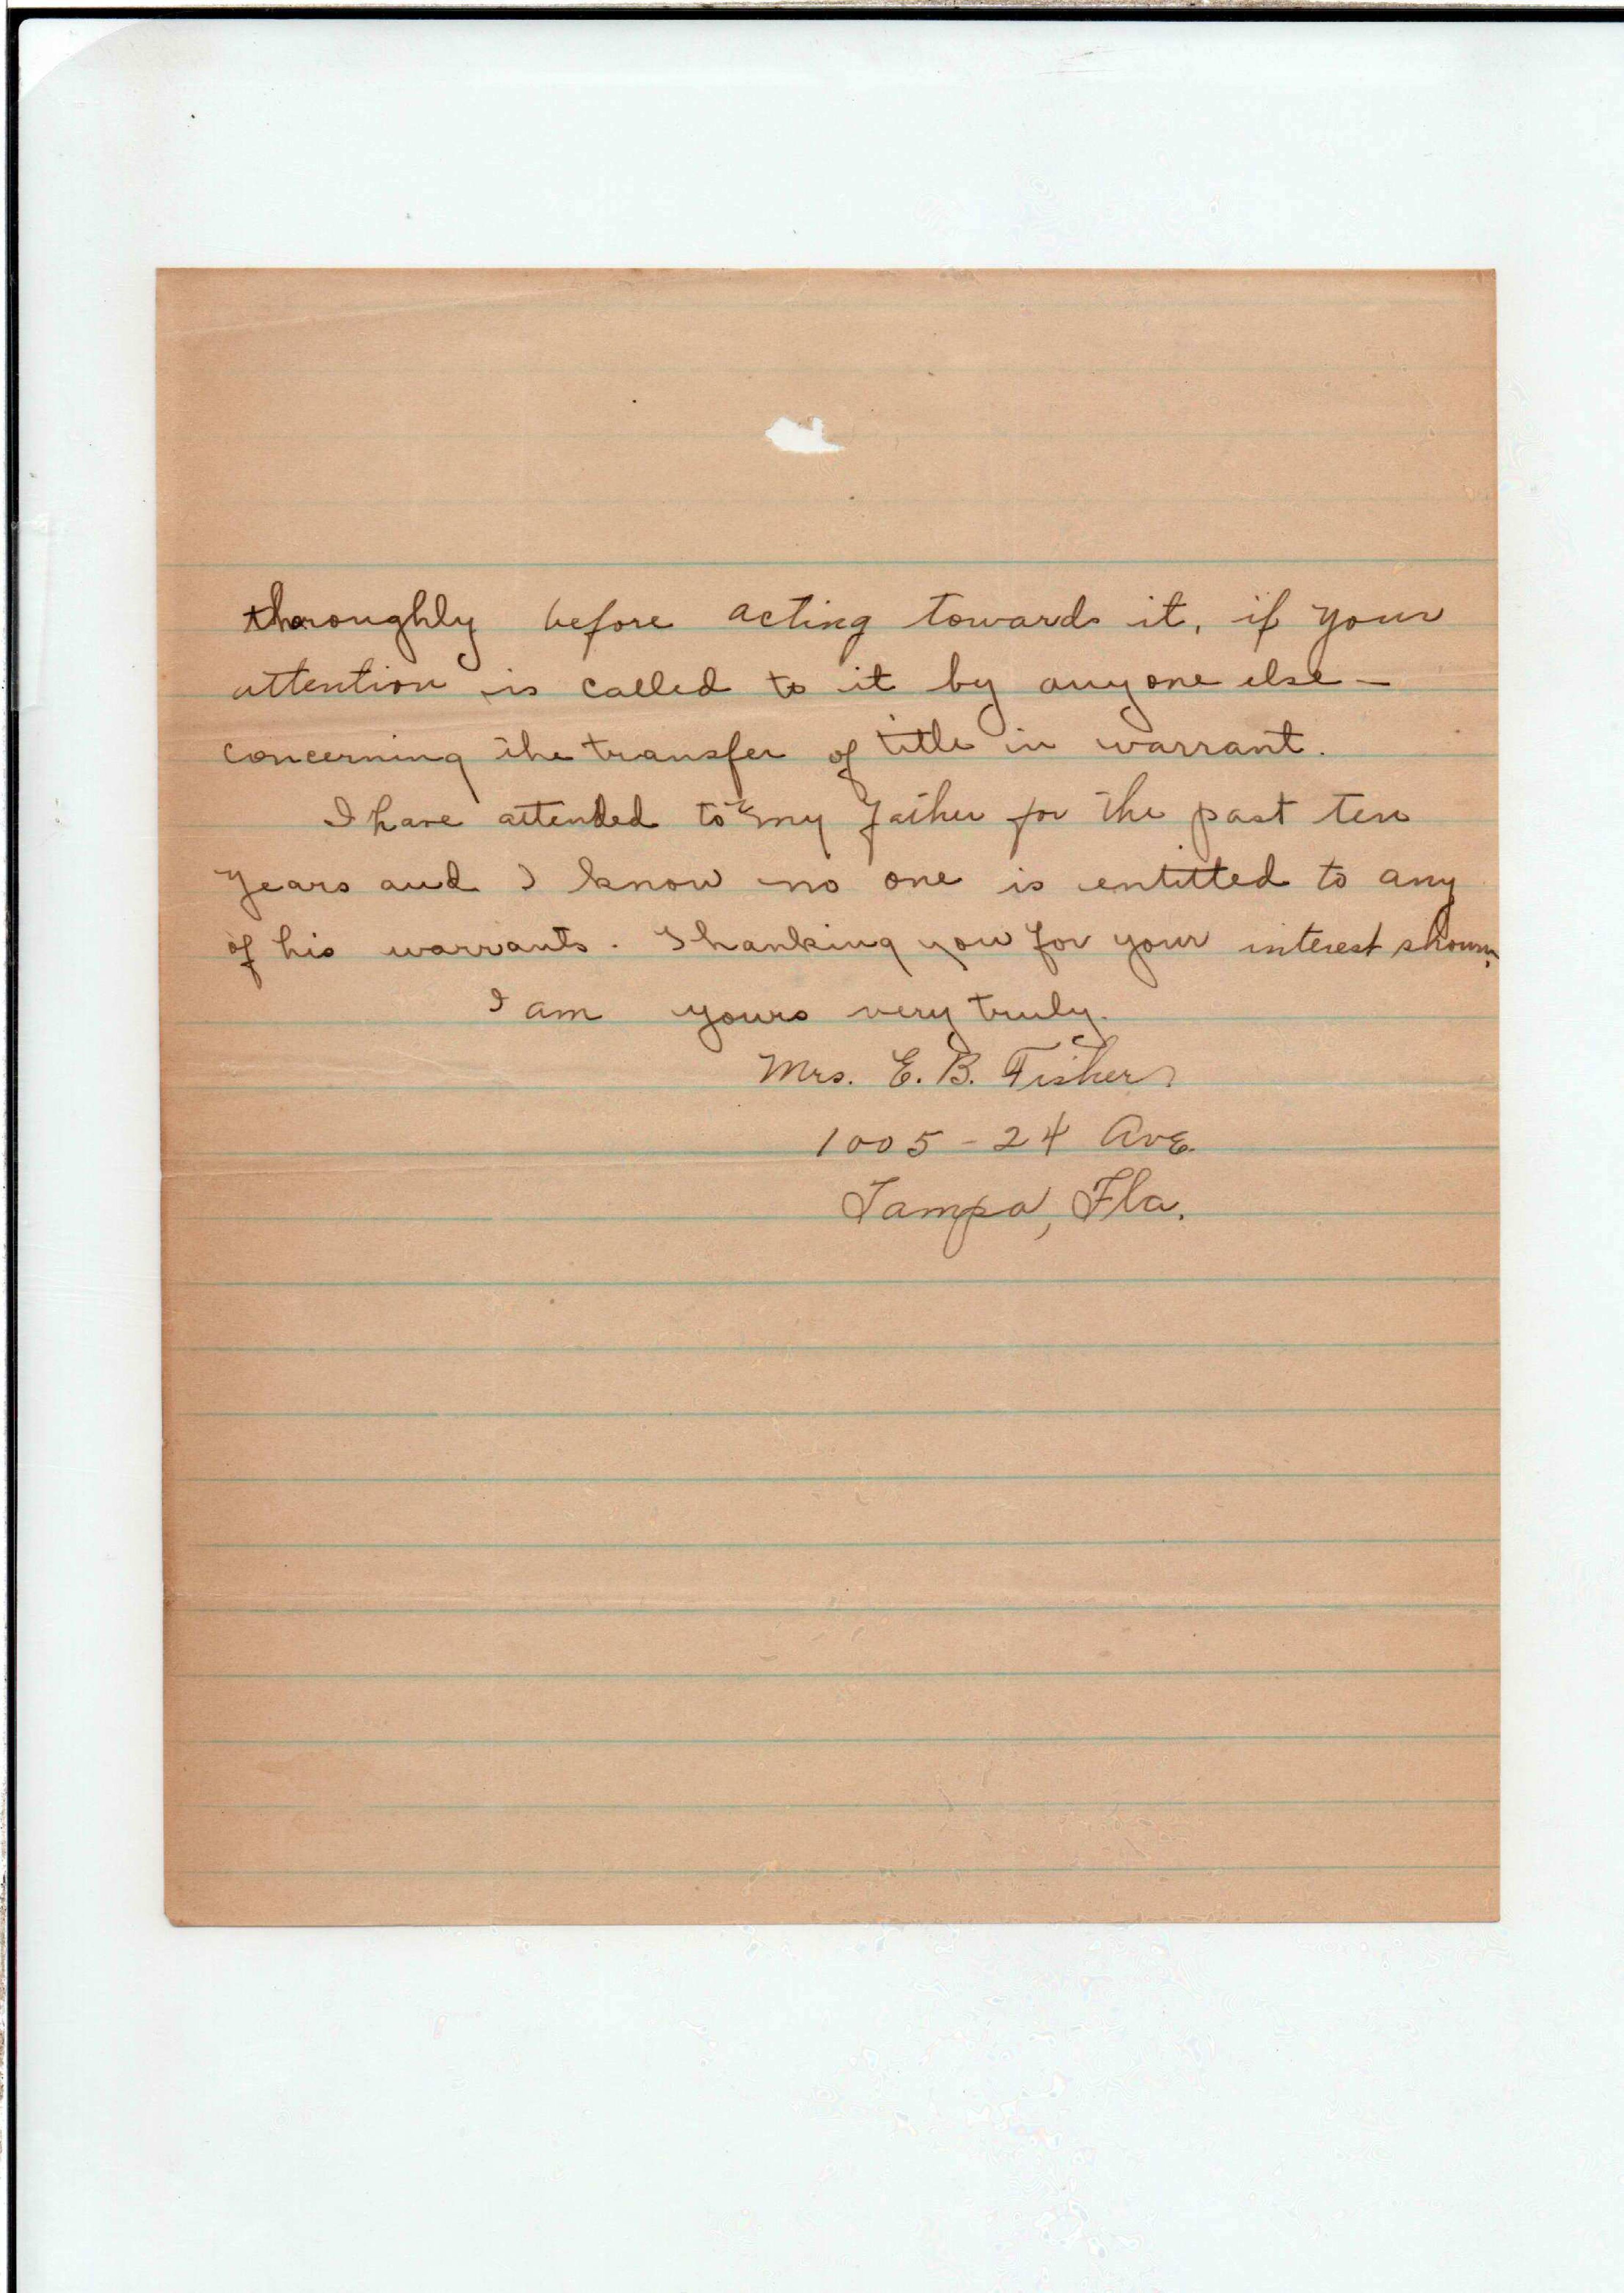 thoroughly before acting towards it, if your
attention is called to it by anyone else –
concerning the transfer of title in warrant.
I have attended to my father for the past ten
years and I know no one is entitled to any
of his warrants. Thanking you for your interest shown,
I am yours very truly.
Mrs. E. B. Fisher
1005 – 24 Ave.
Tampa, Fla.